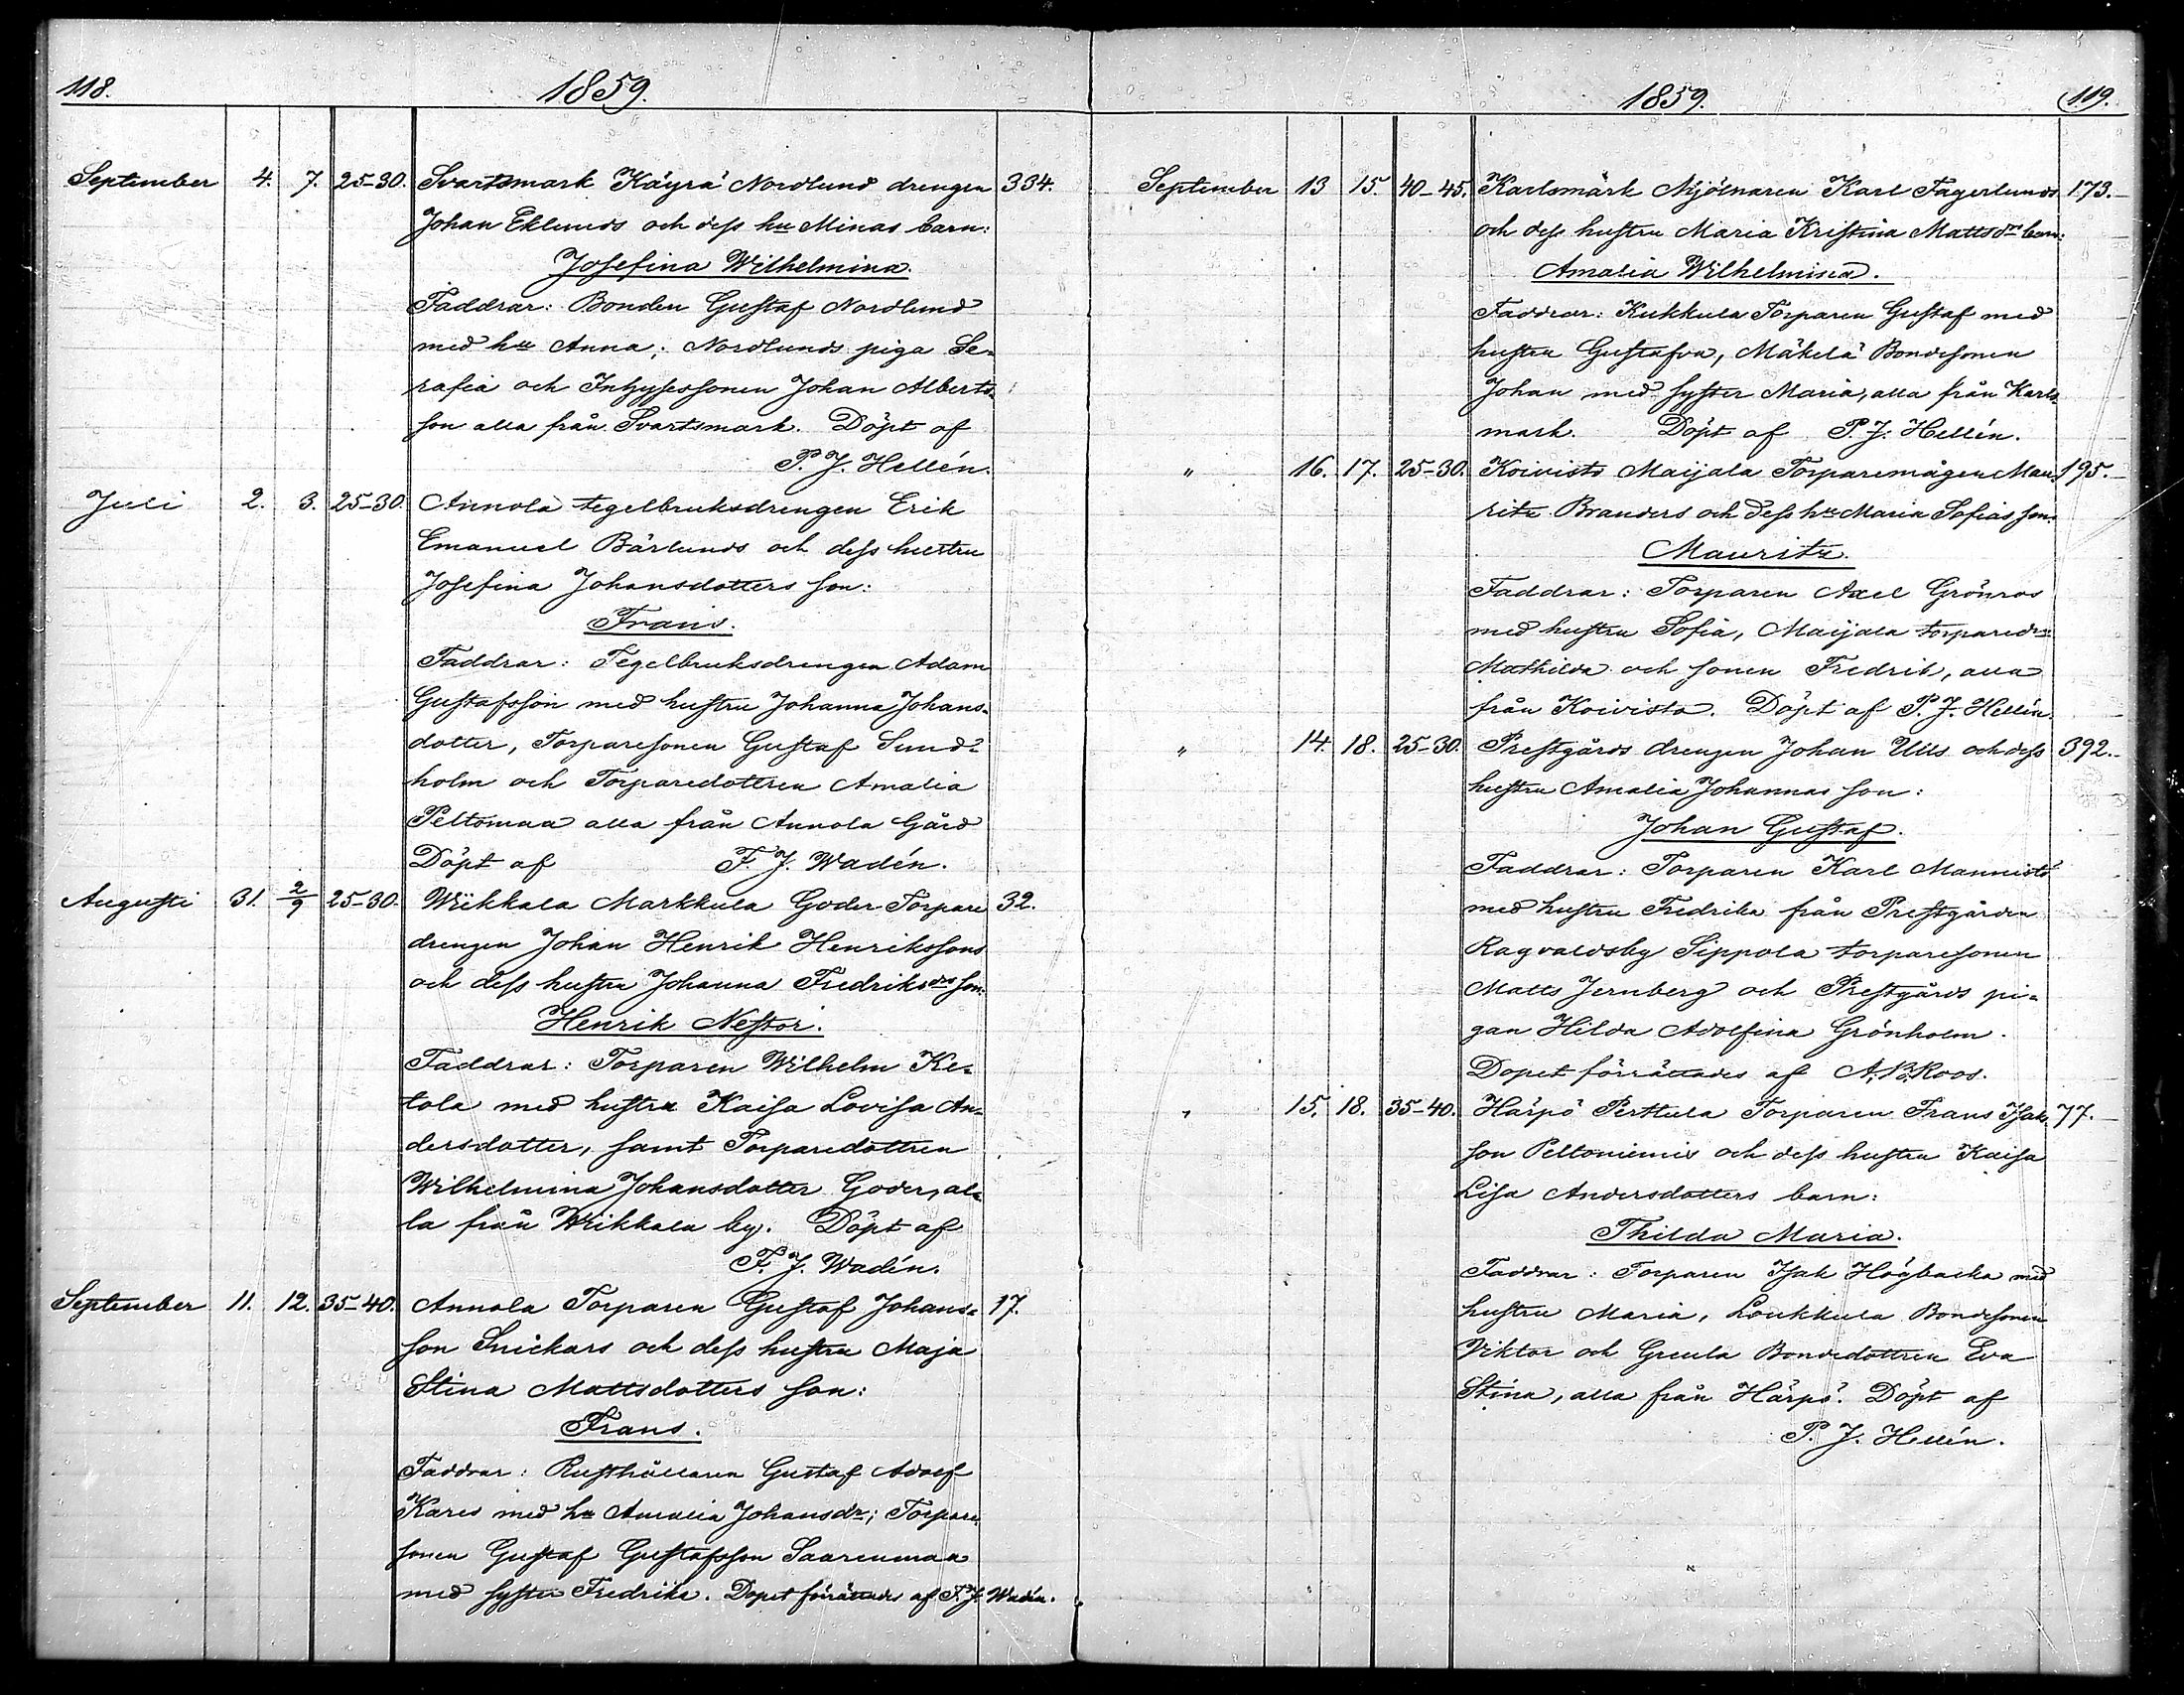 118.
1859.
September 4. 7. 25-30. Svartsmark Käyrä Nordlund drengen 334.
Johan Eklunds och dess hu Minas barn:
Josefina Wilhelmina.
Faddrar: Bonden Gustaf Nordlund
med hu Anna; Nordlunds piga Se-
rafia och Inhysessonen Johan Alberts-
son alla från Svartsmark. Döpt af
P. J. Hellén.
Juli 2. 3. 25-30. Annola tegelbruksdrengen Erik
Emanuel Bärlunds och dess hustru
Josefina Johansdotters son:
Frans.
Faddrar: Tegelbruksdrengen Adam
Gustafsson med hustru Johanna Johans-
dotter, Torparesonen Gustaf Sund-
holm och Torparedottren Amalia
Peltomaa alla från Annola Gård
Döpt af F. J. Wadén.
Augusti 31. 2/9 25-30. Wiikkala Markkula Goder Torpare 32.
drengen Johan Henrik Henrikssons
och dess hustru Johanna Fredriksdrs son:
Henrik Nestor.
Faddrar: Torparen Wilhelm Ke-
tola med hustru Kaisa Lovisa An-
dersdotter, samt Torparedottren
Wilhelmina Johansdotter Goder, al-
la från Wiikkala by. Döpt af
F. J. Wadén.
September 11. 12. 35-40. Annola Torparen Gustaf Johans- 17.
son Snickars och dess hustru Maja
Stina Mattsdotters son:
Frans.
Faddrar: Rusthållaren Gustaf Adolf
Kares med hu Amalia Johansdr; Torpare
sonen Gustaf Gustafsson Saarenmaa
med syster Fredrika. Dopet förrättades af F. J. Wadén.
1859.
119.
September 13 15. 40-45. Karlsmark Mjölnaren Karl Fagerlunds 173.
och dess hustru Maria Kristina Mattsdrs barn:
Amalia Wilhelmina.
Faddrar: Kukkula Torparen Gustaf med
hustru Gustafva, Mäkelä Bondesonen
Johan med syster Maria, alla från Karls-
mark. Döpt af P. J. Hellén.
" 16. 17. 25-30. Koivisto Maijala Torparemågen Mau- 195.
ritz Branders och dess hu Maria Sofias son:
Mauritz.
Faddrar: Torparen Axel Grönros
med hustru Sofia, Maijala torparedr:
Mathilda och sonen Fredrik, alla
från Koivisto. Döpt af P. J. Hellén.
" 14. 18. 25-30. Prestgårds drengen Johan Ulls och dess 392.
hustru Amalia Johannas son:
Johan Gustaf.
Faddrar: Torparen Karl Mannistö
med hustru Fredrika från Prestgården
Ragvaldsby Sippola torparesonen
Matts Jernberg och Prestgårds pi-
gan Hilda Adolfina Grönholm.
Dopet förrättades af A. B. Roos.
" 15. 18. 35-40. Härpö Perttula Torparen Frans Isak- 77.
son Peltoniemis och dess hustru Kaisa
Lisa Andersdotters barn:
Thilda Maria.
Faddrar: Torparen Isak Högbacka med
hustru Maria, Loukkula Bondesonen
Viktor och Greula Bondedottren Eva
Stina, alla från Härpö. Döpt af
P. J. Hellén.